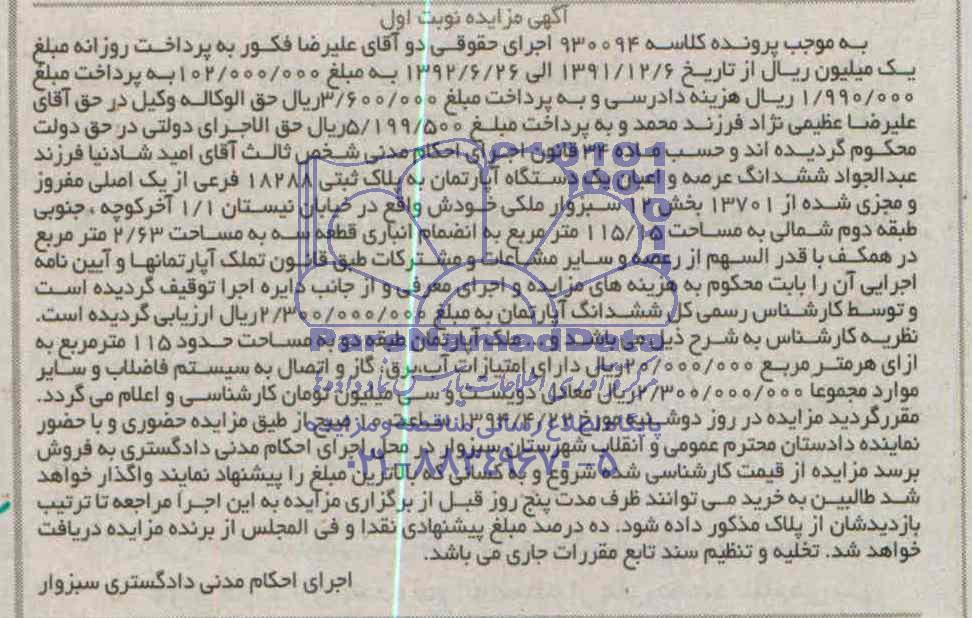 آگهی مزایده نوبت اول
به موجب پرونده کلاسه ۹۳۰۰۹۴ اجرای حقوقی دو آقای علیرضا فکور به پرداخت روزانه مبلغ
یک میلیون ریال از تاریخ ۱۳۹۱/۱۲/۶ الی ۱۳۹۲/۶/۲۶ به مبلغ ۱۰۲/۰۰۰/۰۰۰ به پرداخت مبلغ
۱/۹۹۰/۰۰۰ ریال هزینه دادرسی و به پرداخت مبلغ ۳/۶۰۰/۰۰۰ریال حق الوکاله وکیل در حق آقای
علیرضا عظیمی نژاد فرزند محمد و به پرداخت مبلغ ۵/۱۹۹/۵۰۰ریال حق الاجرای دولتی در حق دولت
محکوم گردیده اند و حسب ماده ۳۴ قانون اجرای احکام مدنی شخص ثالث آقای امید شادنیا فرزند
عبدالجواد ششدانگ عرصه و اعیان یک دستگاه آپارتمان به پلاک ثبتی ۱۸۲۸۸ فرعی از یک اصلی مفروز
و مجزی شده از ۱۳۷۰۱ بخش ۱۲ سبزوار ملکی خودش واقع در خیابان نیستان ۱/۱ آخرکوچه ، جنوبی
طبقه دوم شمالی به مساحت ۱۱۵/۱۵ متر مربع به انضمام انباری قطعه سه به مساحت ۲/۶۳ متر مربع
در همکف با قدر السهم از رعصه و سایر مشاعات و مشترکات طبق قانون تملک آپارتمانها و آیین نامه
اجرایی آن را بابت محکوم به هزینه های مزایده و اجرای معرفی و از جانب دایره اجرا توقیف گردیده است
و توسط کارشناس رسمی کل ششدانگ آپارتمان به مبلغ ۲/۳۰۰/۰۰۰/۰۰۰ریال ارزیابی گردیده است.
نظریه کارشناس به شرح ذیل می باشد و ..ملک آپارتمان طبقه دو به مساحت حدود ۱۱۵ مترمربع به
ازای هرمتر مربع ۲۰/۰۰۰/۰۰۰ریال دارای امتیازات آب،برق، گاز و اتصال به سیستم فاضلاب و سایر
موارد مجموعا ۲/۳۰۰/۰۰۰/۰۰۰ریال معادل دویست و سی میلیون تومان کارشناسی و اعلام می گردد.
مقررگردید مزایده در روز دوشنبه مورخ ۱۳۹۴/۴/۲۲ ساعت صبح از طیق مزایده حضوری و با حضور
نماینده دادستان محترم عمومی و انقلاب شهرستان سبزوار در محل اجرای احکام مدنی دادگستری به فروش
برسد مزایده از قیمت کارشناسی شده شروع و به کسانی که بالاترین مبلغ را پیشنهاد نمایند واگذار خواهد
شد طالبین به خرید می توانند ظرف مدت پنج روز قبل از برگزاری مزایده به این اجرا مراجعه تا ترتیب
بازدیدشان از پلاک مذکور داده شود. ده درصد مبلغ پیشنهادی نقدا و فی المجلس از برنده مزایده دریافت
خواهد شد. تخلیه و تنظیم سند تابع مقررات جاری می باشد.
اجرای احکام مدنی دادگستری سبزوار